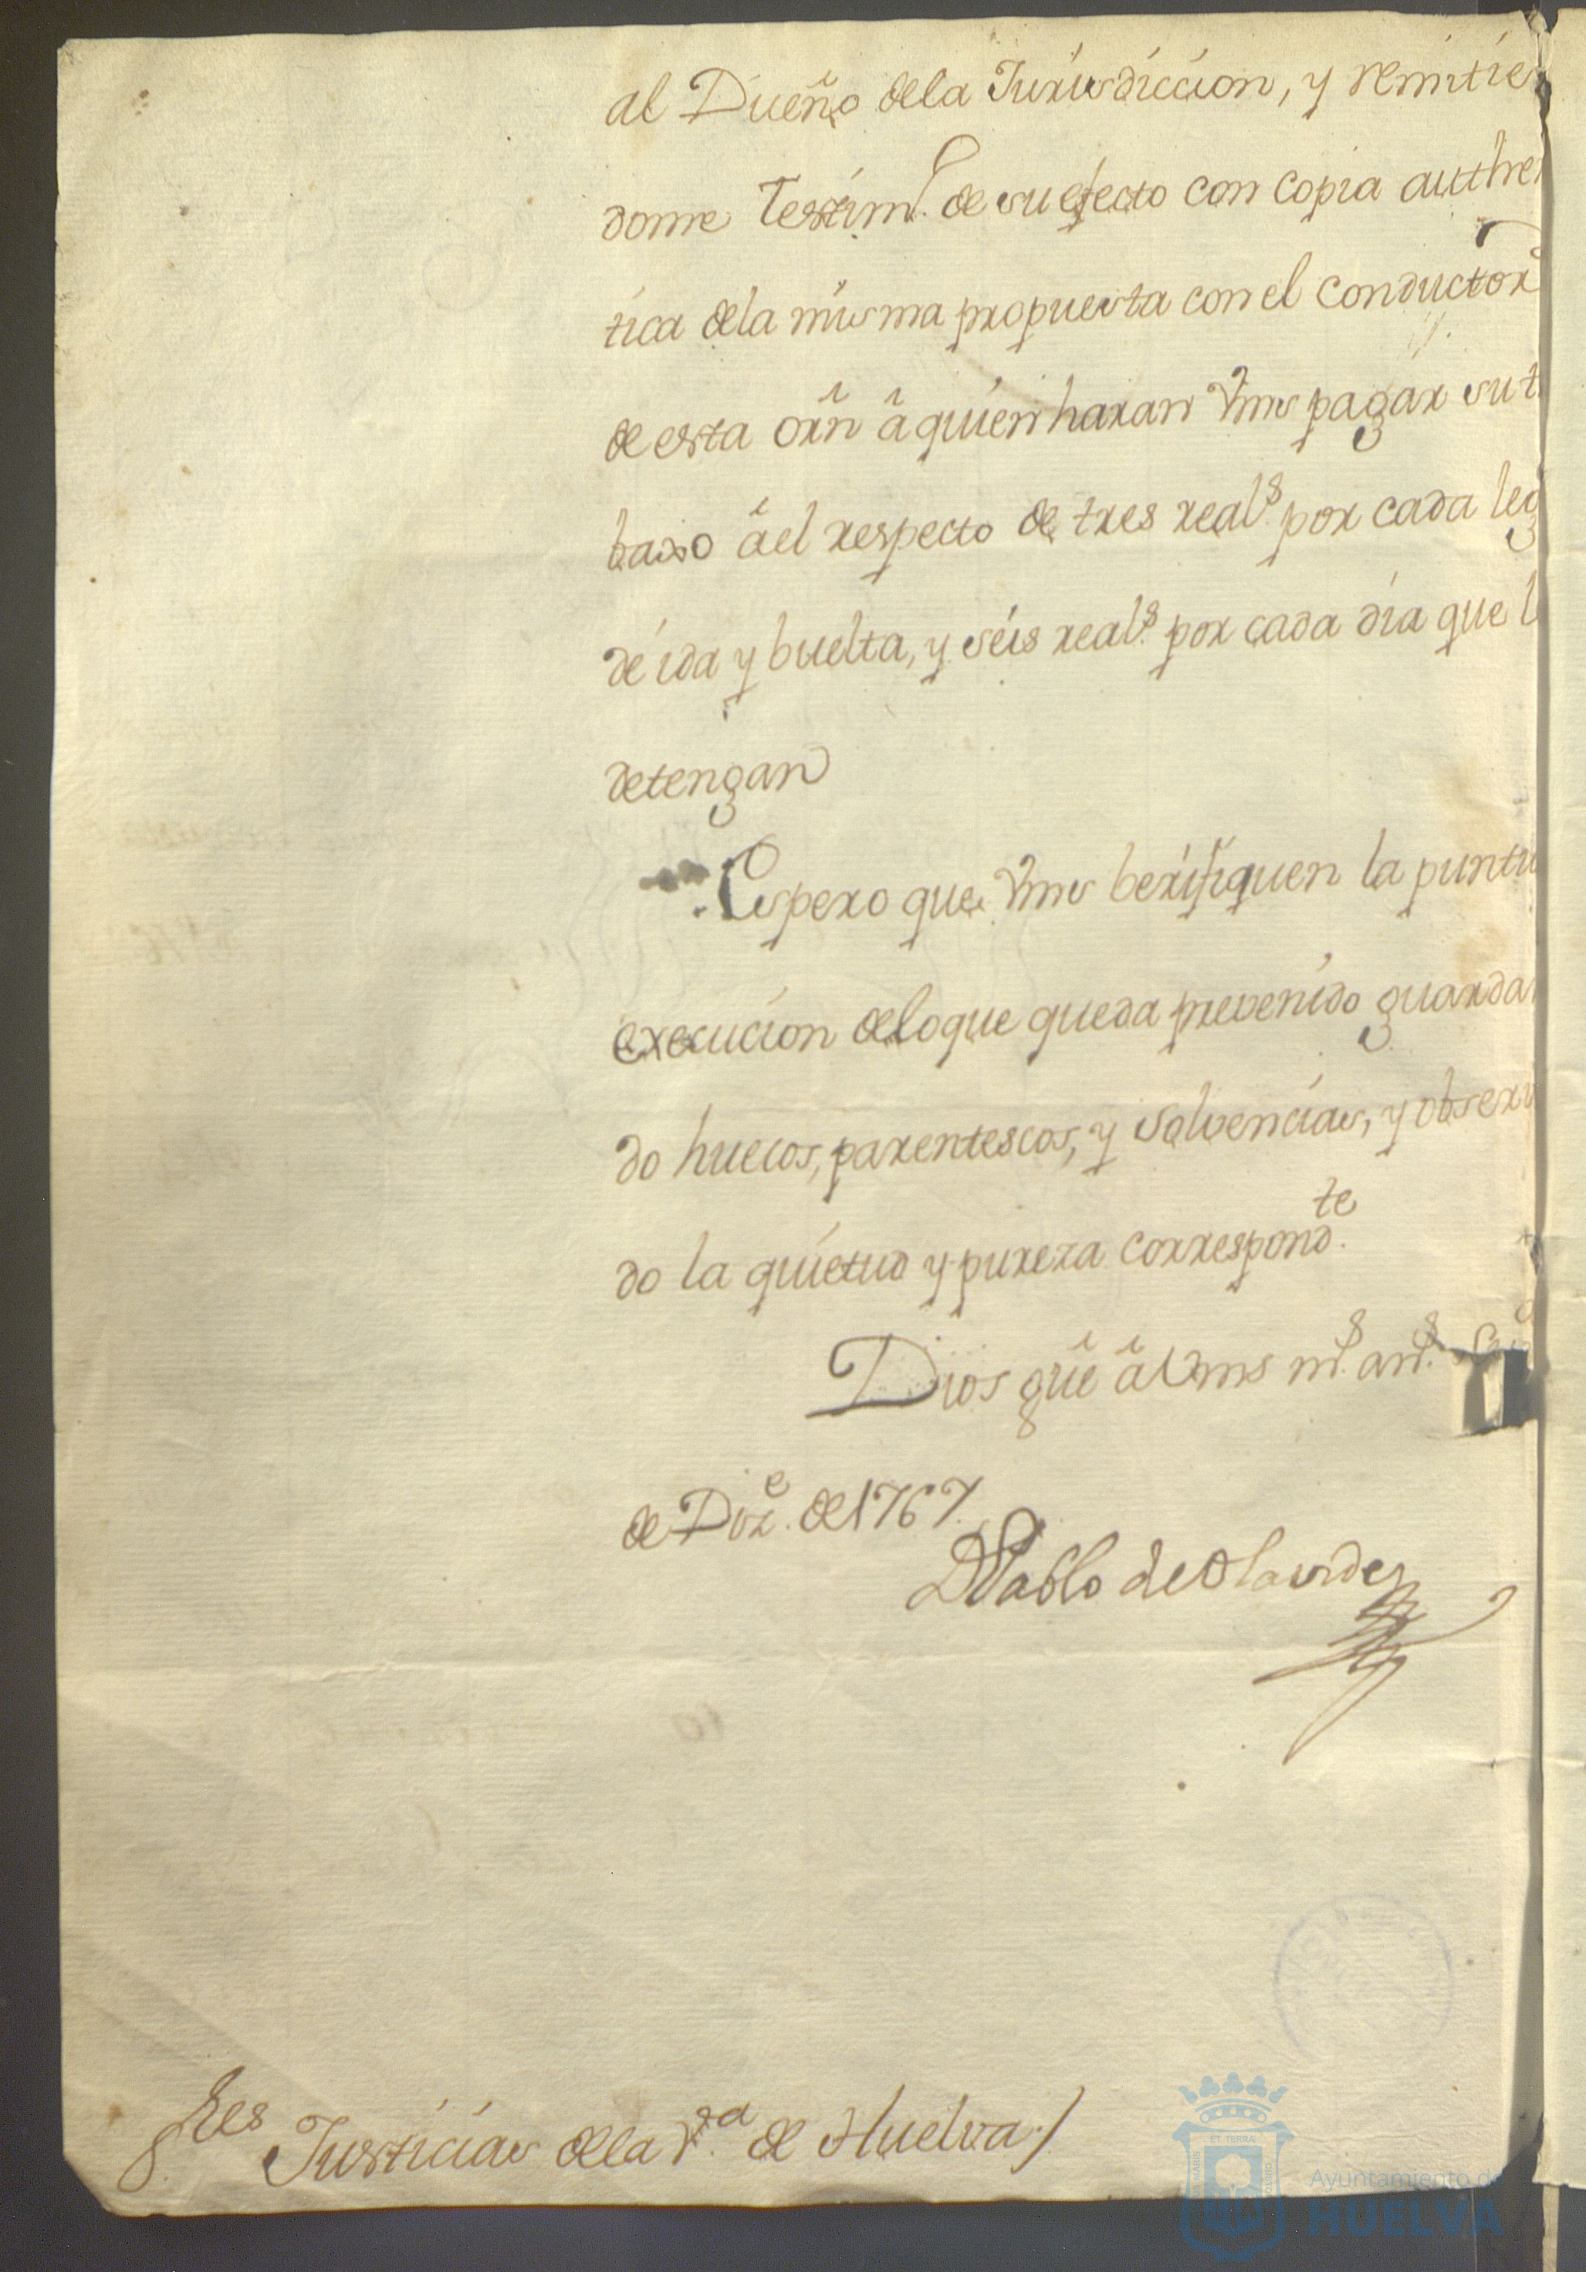 al Dueño dela Jurisdiccion, y remitien
dome Testim.º de su efecto con copia authen
tica dela misma propuesta con el conductor
de esta orñ â quien haran Vms pagar su t
baxo âel respecto de tres real.s por cada leg
de ida y buelta, y seis real.s por cada dia que l
detengan
Espero que Vms berifiquen la puntu
execucion delo que queda prevenido guardan
do huecos, parentescos, y solvencias, y observ
do la quietud y pureza correspond.te
Dios gûe â Vms m.s an.s
de Diz.e de 1767.
D Pablo de Olavides
S.res Justicias dela V.a de Huelva /
ET TERRÆ
Ayuntamiento de
HUELVA